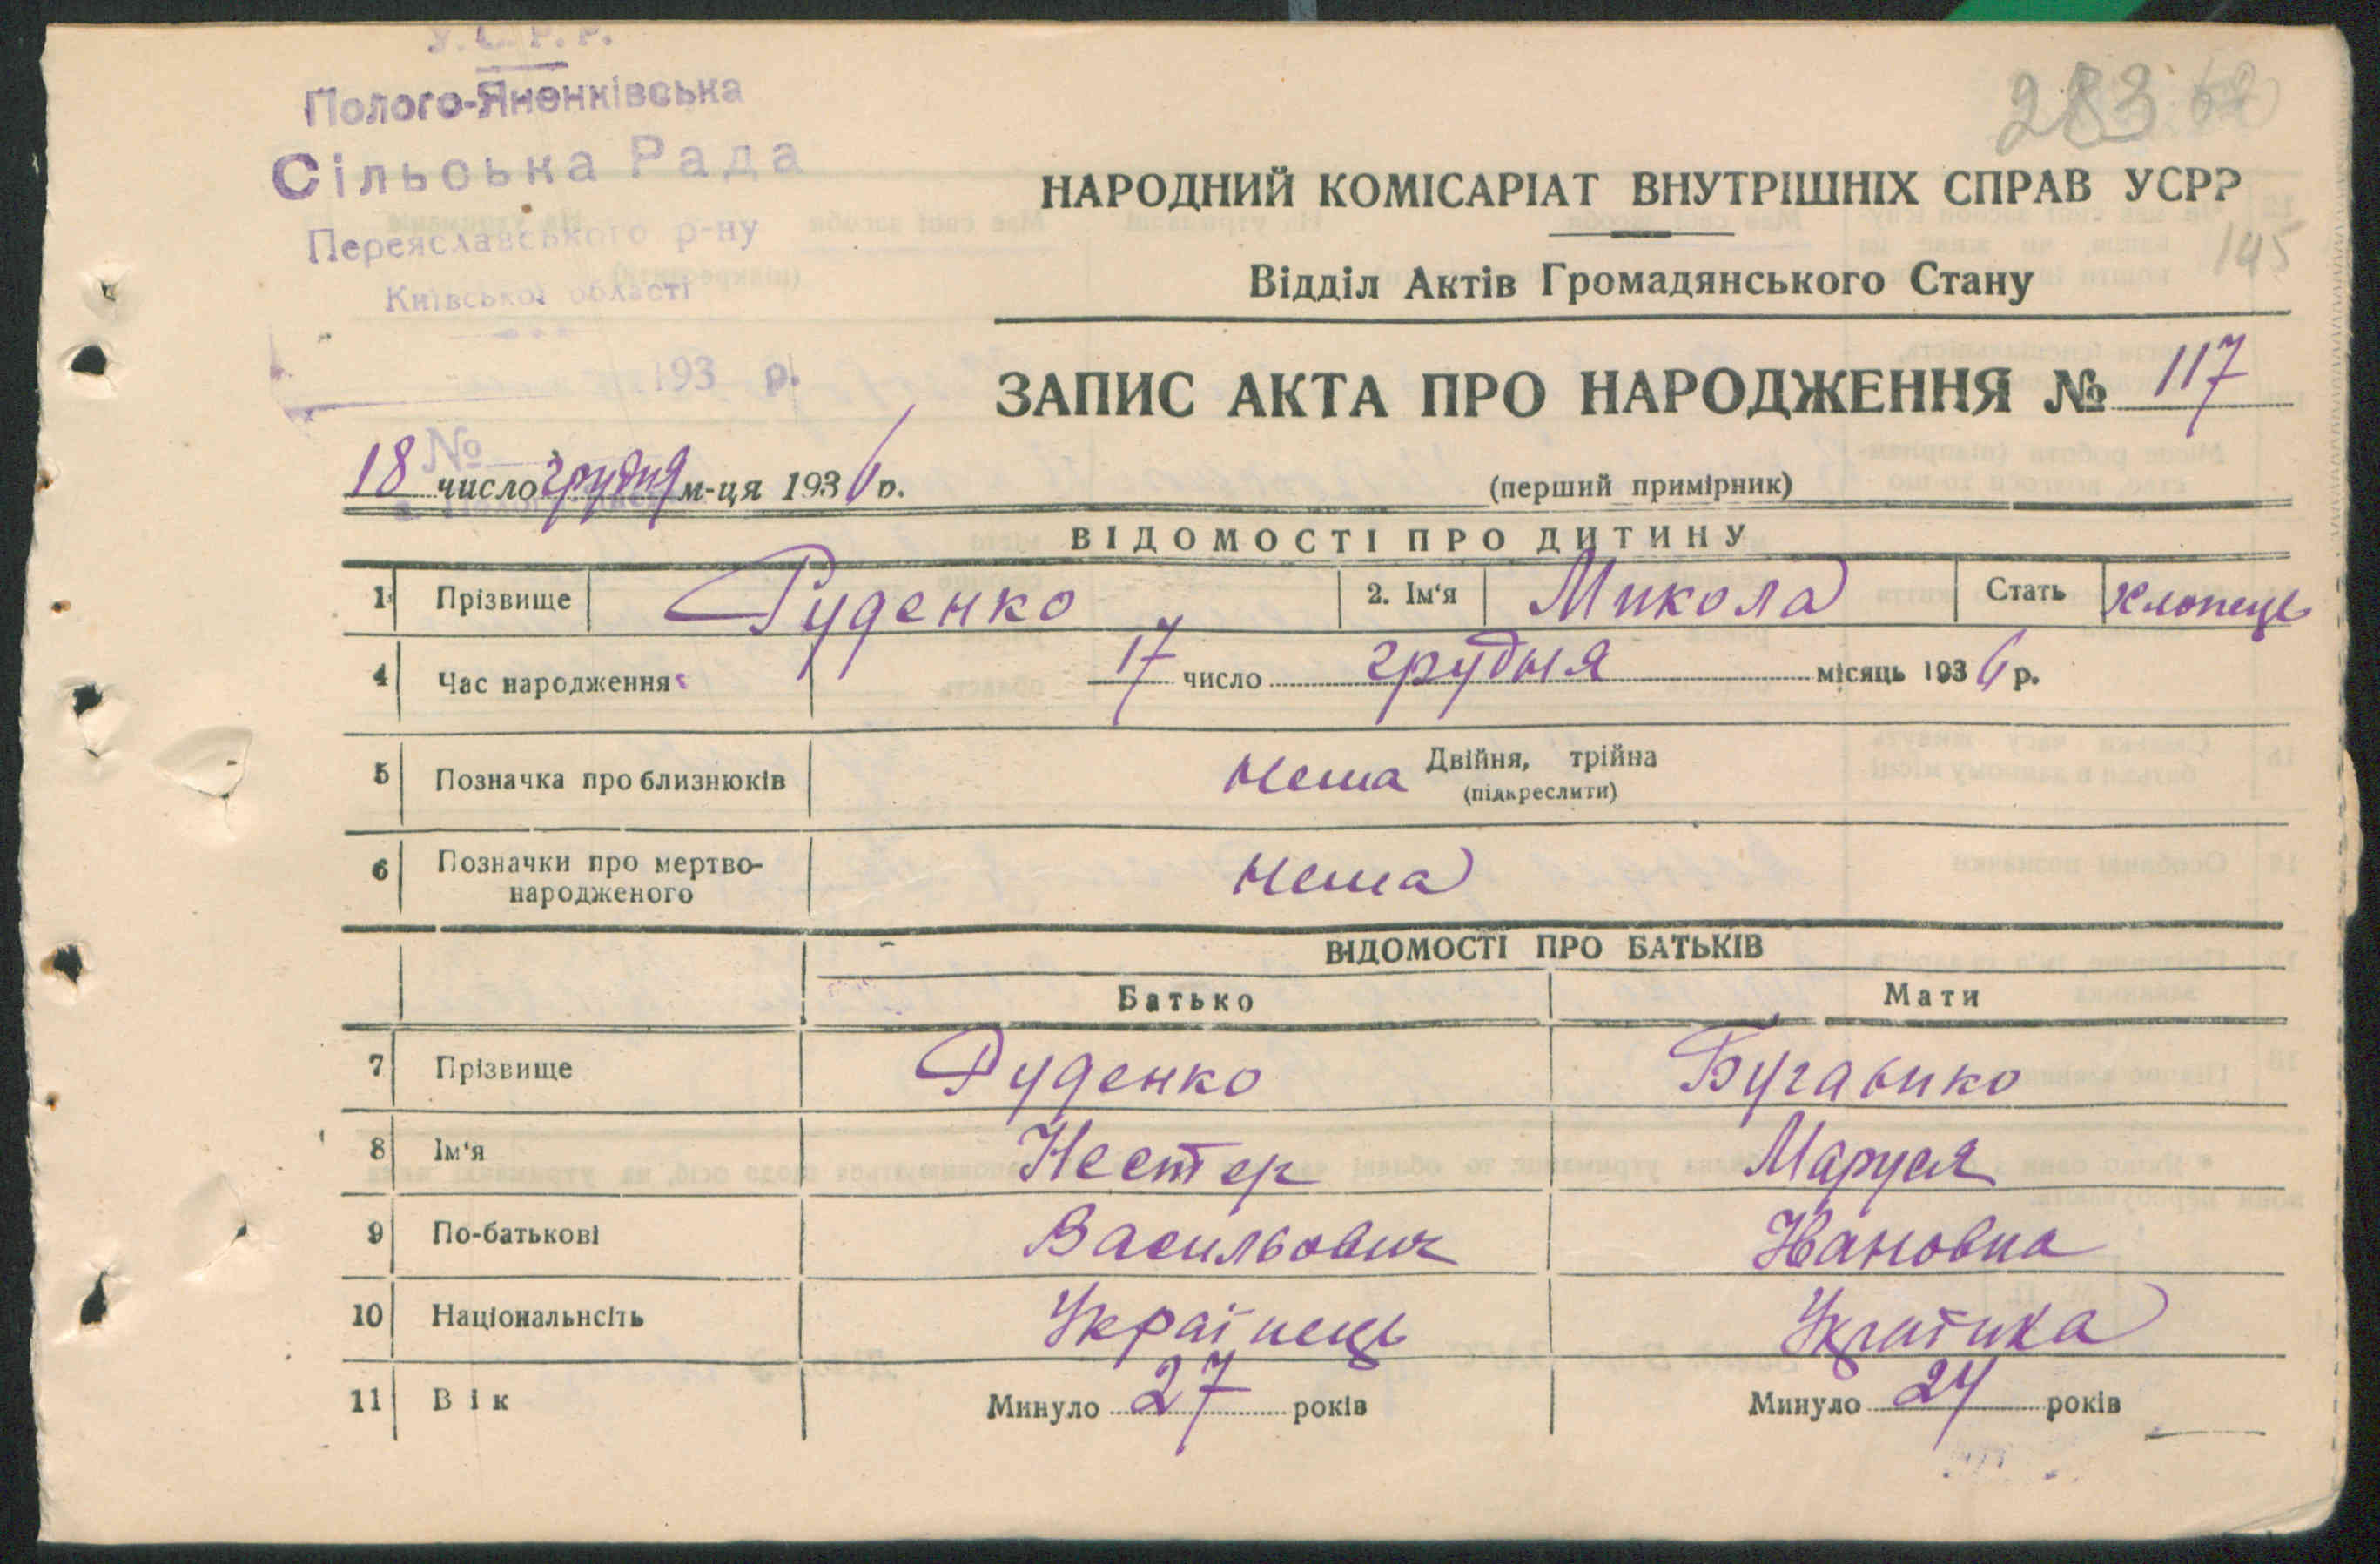 У.С.Р.Р.
Полого-Яненківська
Сільська Рада
Переяславського р-ну
Київської області
193 р.
№
283
145
НАРОДНИЙ КОМІСАРІАТ ВНУТРІШНІХ СПРАВ УСРР
Відділ Актів Громадянського Стану
ЗАПИС АКТА ПРО НАРОДЖЕННЯ № 117
18 число грудня м-ця 1936 р.
(перший примірник)
ВІДОМОСТІ ПРО ДИТИНУ
1 Прізвище Руденко 2. Ім'я Микола Стать хлопець
4 Час народження 17 число грудня місяць 1936 р.
5 Позначка про близнюків нема Двійня, трійна
(підкреслити)
6 Позначки про мертво-
народженого нема
ВІДОМОСТІ ПРО БАТЬКІВ
Батько Мати
7 Прізвище Руденко
8 Ім'я Нестер Маруся
9 По-батькові Васильович Івановна
10 Національнсіть Українець Українка
11 Вік Минуло 27 років Минуло 24 років